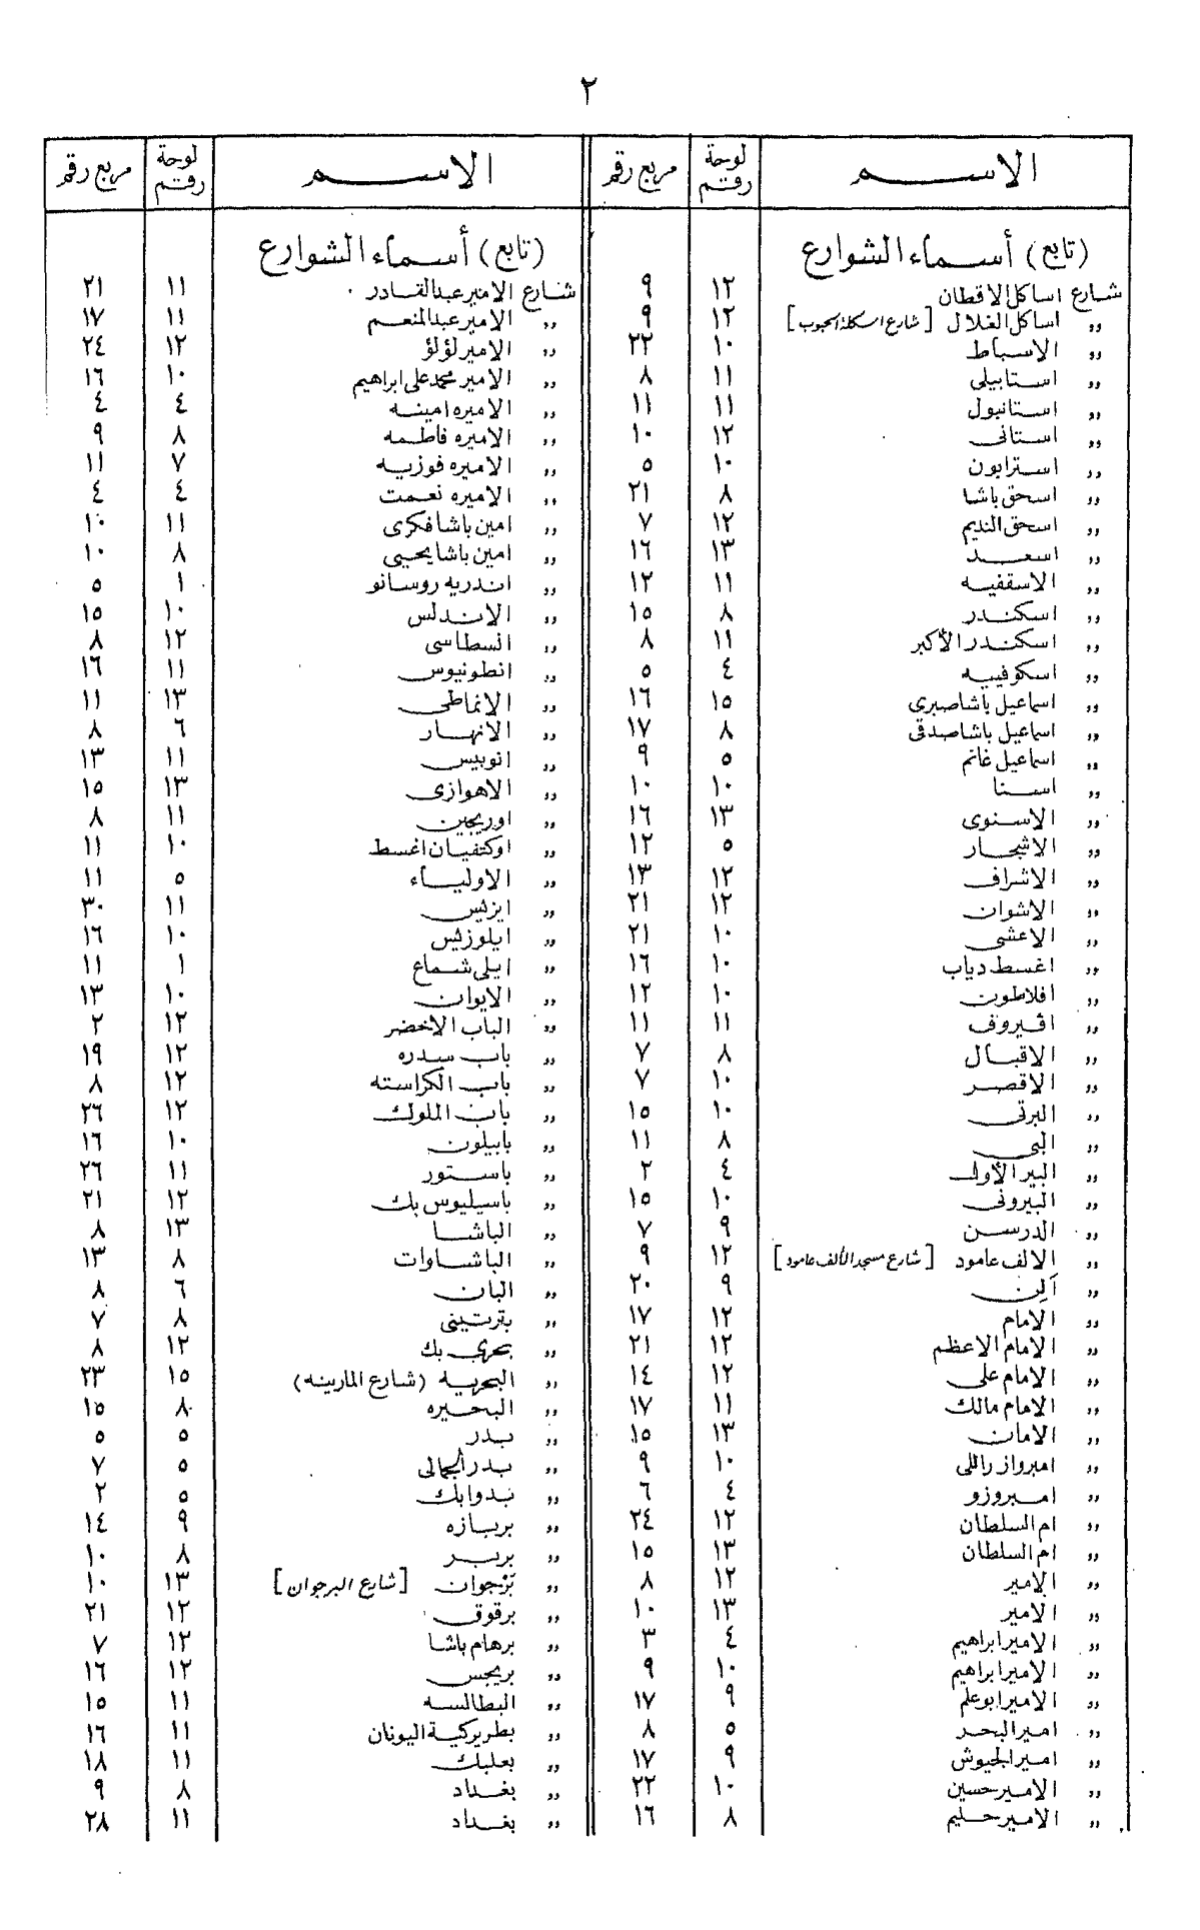 ٢
الاسم لوحة رقم مربع رقم
(تابع) أسماء الشوارع
شارع اساكل الاقطان ١٢ ٩
״ اساكل الغلال [شارع اسكلة الحبوب] ١٢ ٩
״ الاسباط ١٠ ٢٢
״ استابيلى ١١ ٨
״ استانبول ١١ ١١
״ استانى ١٢ ١٠
״ استرابون ١٠ ٥
״ اسحق باشا ٨ ٢١
״ اسحق النديم ١٢ ٧
״ اسعد ١٣ ١٦
״ الاسقفيه ١١ ١٢
״ اسكندر ٨ ١٥
״ اسكندر الأكبر ١١ ٨
״ اسكوفييه ٤ ٥
״ اسماعيل باشا صبرى ١٥ ١٦
״ اسماعيل باشا صدقى ٨ ١٧
״ اسماعيل غانم ٥ ٩
״ اسنا ١٠ ١٠
״ الاسنوى ١٣ ١٦
״ الاشجار ٥ ١٢
״ الاشراف ١٢ ١٣
״ الاشوان ١٢ ٢١
״ الاعشى ١٠ ٢١
״ اغسط دياب ١٠ ١٦
״ افلاطون ١٠ ١٢
״ اڤيروف ١١ ١١
״ الاقبال ٨ ٧
״ الاقصر ١٠ ٧
״ البرتى ١٠ ١٥
״ البى ٨ ١١
״ البير الأول ٤ ٢
״ البيرونى ١٠ ١٥
״ الدرسن ٩ ٧
״ الالف عامود [شارع مسجد الألف عامود] ١٢ ٩
״ آلن ٩ ٢٠
״ الامام ١٢ ١٧
״ الامام الاعظم ١٢ ٢١
״ الامام على ١٢ ١٤
״ الامام مالك ١١ ١٧
״ الامان ١٣ ١٥
״ امبرواز راللى ١٠ ٩
״ امبروزو ٤ ٦
״ ام السلطان ١٢ ٢٤
״ ام السلطان ١٣ ١٥
״ الامير ١٢ ٨
״ الامير ١٣ ١٠
״ الامير ابراهيم ٤ ٣
״ الامير ابراهيم ١٠ ٩
״ الامير ابو علم ٩ ١٧
״ امير البحر ٥ ٨
״ امير الجيوش ٩ ١٧
״ الامير حسين ١٠ ٢٢
״ الامير حليم ٨ ١٦
الاسم لوحة رقم مربع رقم
(تابع) أسماء الشوارع
شارع الامير عبد القادر ١١ ٢١
״ الامير عبد المنعم ١١ ١٧
״ الامير لؤلؤ ١٢ ٢٤
״ الامير محمد على ابراهيم ١٠ ١٦
״ الاميره امينه ٤ ٤
״ الاميره فاطمه ٨ ٩
״ الاميره فوزيه ٧ ١١
״ الاميره نعمت ٤ ٤
״ امين باشا فكرى ١١ ١٠
״ امين باشا يحيى ٨ ١٠
״ اندريه روسانو ١ ٥
״ الاندلس ١٠ ١٥
״ انسطاسى ١٢ ٨
״ انطونيوس ١١ ١٦
״ الانماطى ١٣ ١١
״ الانهار ٦ ٨
״ انوبيس ١١ ١٣
״ الاهوازى ١٣ ١٥
״ اوريجين ١١ ٨
״ اوكتفيان اغسط ١٠ ١١
״ الاولياء ٥ ١١
״ ايزيس ١١ ٣٠
״ ايلوزيس ١٠ ١٦
״ ايلى شماع ١ ١١
״ الايوان ١٠ ١٣
״ الباب الاخضر ١٢ ٢
״ باب سدره ١٢ ١٩
״ باب الكراسته ١٢ ٨
״ باب الملوك ١٢ ٢٦
״ بابيلون ١٠ ١٦
״ باستور ١١ ٢٦
״ باسيليوس بك ١٢ ٢١
״ الباشا ١٣ ٨
״ الباشاوات ٨ ١٣
״ البان ٦ ٨
״ بترتينى ٨ ٧
״ بحري بك ١٢ ٨
״ البحريه (شارع المارينه) ١٥ ٢٣
״ البحيره ٨ ١٥
״ بدر ٥ ٥
״ بدر الجمالى ٥ ٧
״ بدوا بك ٥ ٢
״ بربازه ٩ ١٤
״ بربر ٨ ١٠
״ برجوان [شارع البرجوان] ١٣ ١٠
״ برقوق ١٢ ٢١
״ برهام باشا ١٢ ٧
״ بريجس ١٢ ١٦
״ البطالسه ١١ ١٥
״ بطريركية اليونان ١١ ١٦
״ بعلبك ١١ ١٨
״ بغداد ٨ ٩
״ بغداد ١١ ٢٨